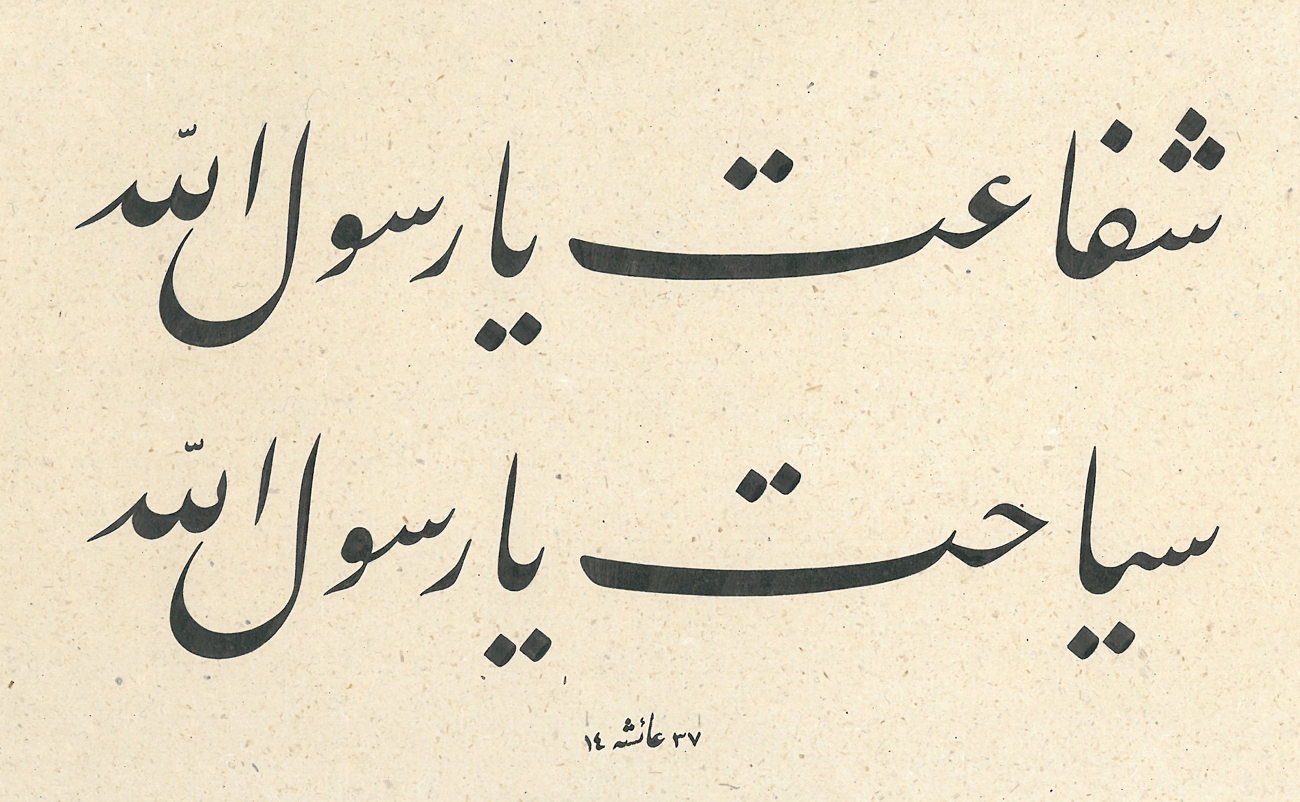 شفاعت يا رسول الله
سياحت يا رسول الله
٣٧ عائشه ١٤